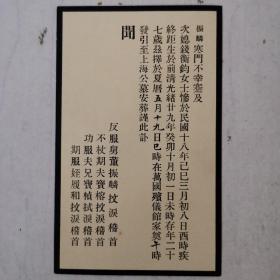 振麟寒門不幸禍及
次媳錢衡鈞女士慘於民國十八年己巳三月初八日酉時疾
終距生於前清光緒廿九年癸卯十月初一日未時存年二十
七歲茲擇於夏曆五月十九日巳時在萬國殯儀館家奠午時
發引至上海公墓安葬謹此訃
聞
反服舅董振麟抆淚稽首
不杖期夫寶榕抆淚稽首
功服夫兄寶楨拭淚稽首
期服姪履和抆淚稽首